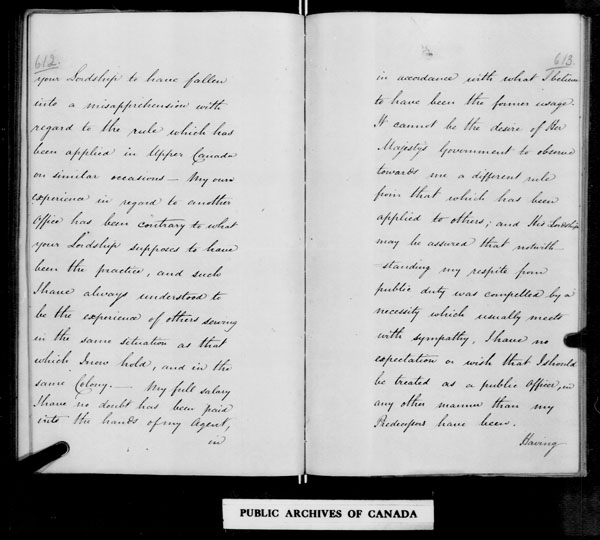 612.
your Lordship to have fallen
into a misapprehension with
regard to the rule which has
been applied in Upper Canada
on similar occasions — My own
experience in regard to another
Office has been contrary to what
your Lordship supposes to have
been the practice, and such
I have always understood to
be the experience of others serving
in the same situation as that
which I now hold, and in the
same Colony. — My full salary
I have no doubt has been paid
into the hands of my Agent,
in
613.
in accordance with what I believe
to have been the former usage.
It cannot be the desire of Her
Majesty's Government to observe
towards me a different rule
from that which has been
applied to others; and His Lordship
may be assured that notwith-
-standing my respite from
public duty was compelled by a
necessity which usually meets
with sympathy, I have no
expectation or wish that I should
be treated as a public Officer, in
any other manner than my
Predecessors have been.
Having
PUBLIC ARCHIVES OF CANADA